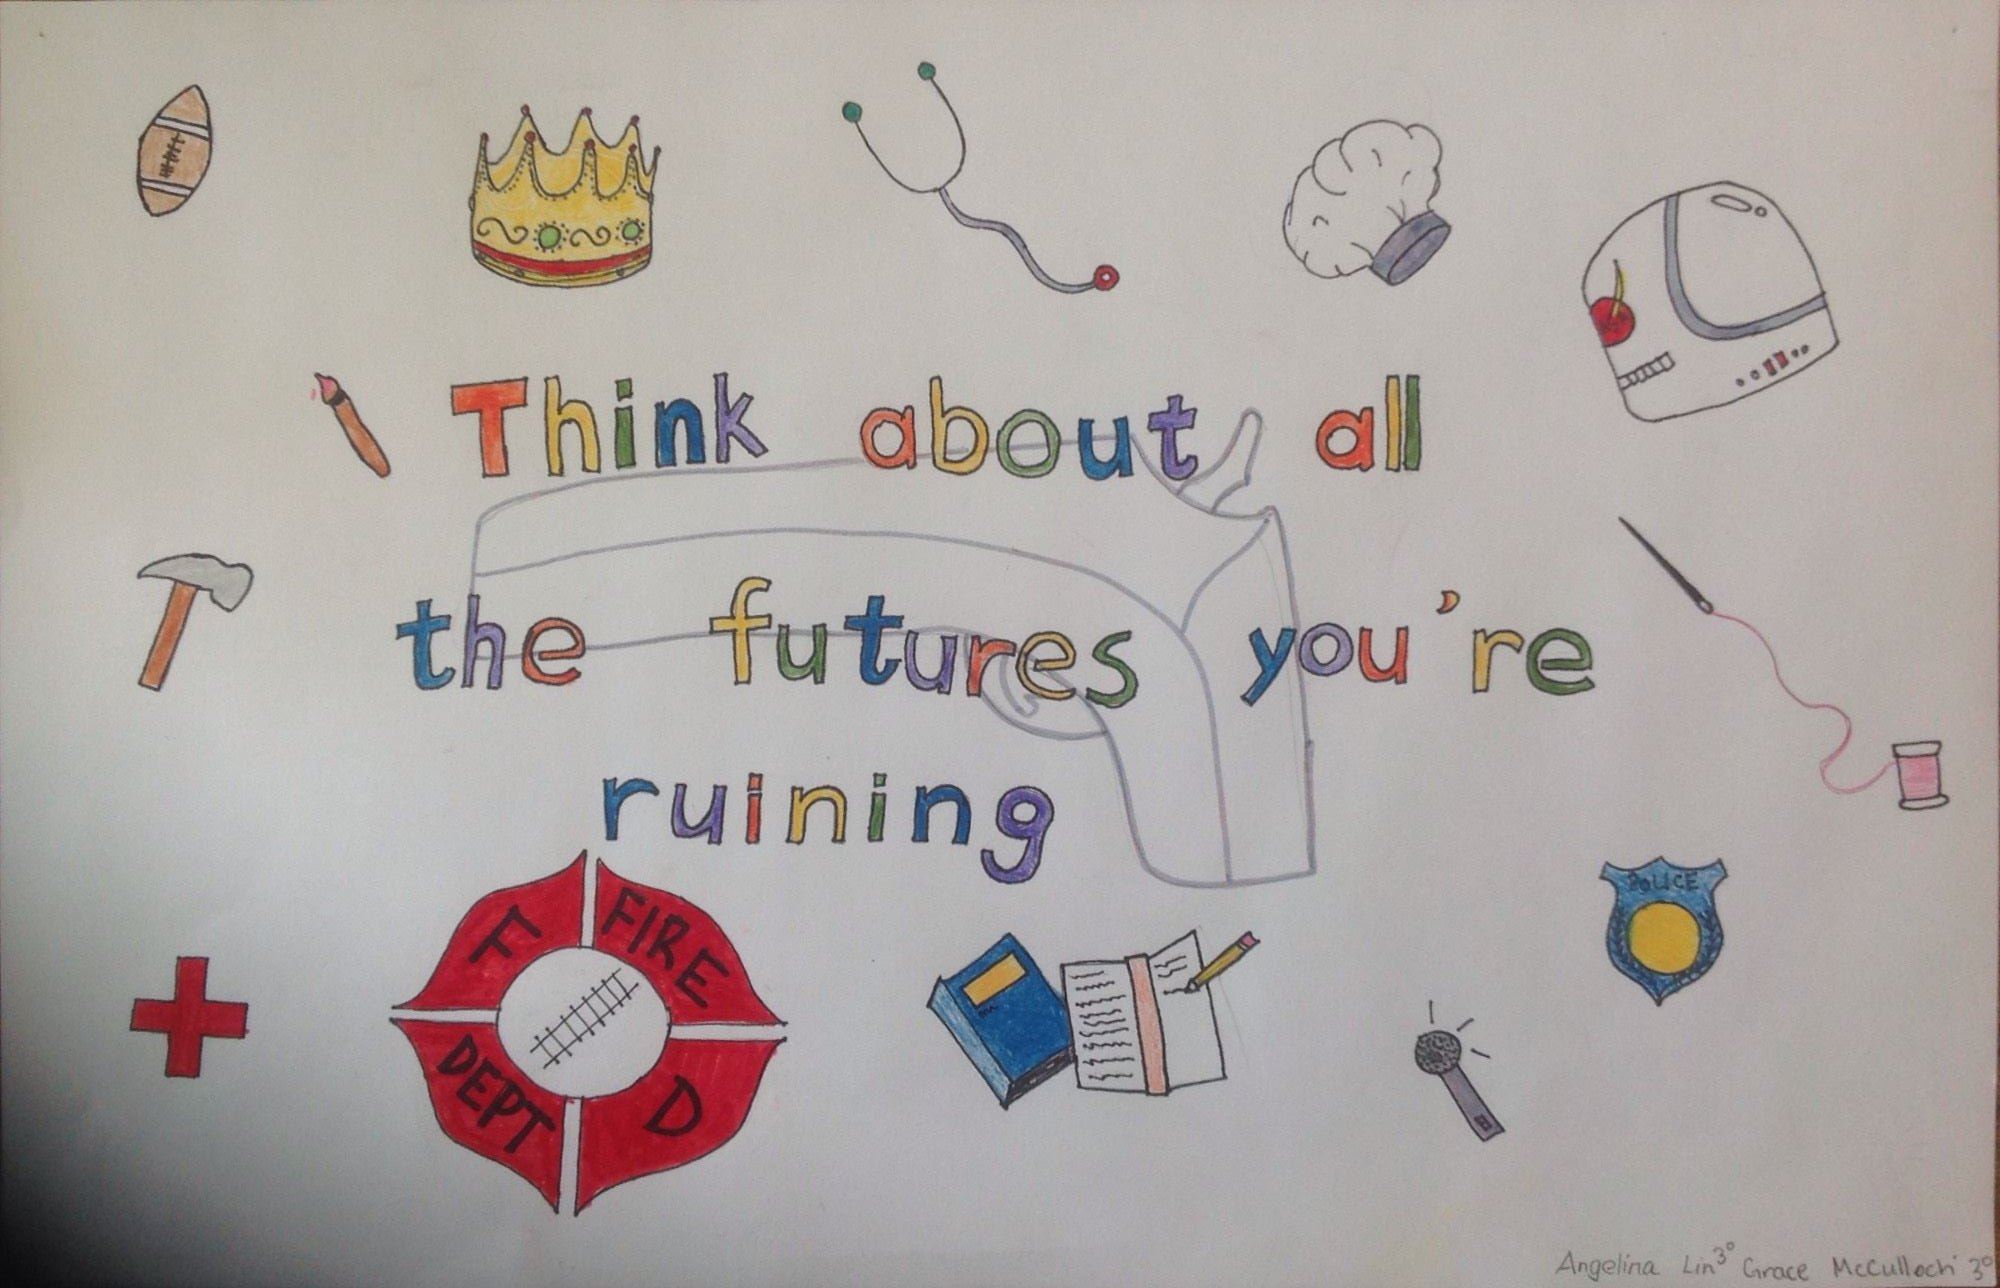 Think about all
the futures you're
ruining
POLICE
F FIRE
DEPT D
Angelina Lin 3° Grace McCulloch 3°